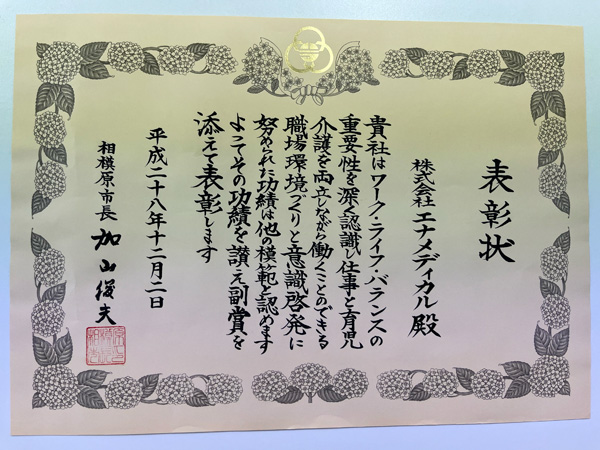 表彰状
株式会社 エナメディカル 殿
貴社はワーク・ライフ・バランスの
重要性を深く認識し仕事と育児
介護を両立しながら働くことのできる
職場環境づくりと意識啓発に
努められた功績は他の模範と認めます
よってその功績を讃え副賞を
添えて表彰します
平成二十八年十二月二日
相模原市長 加山俊夫